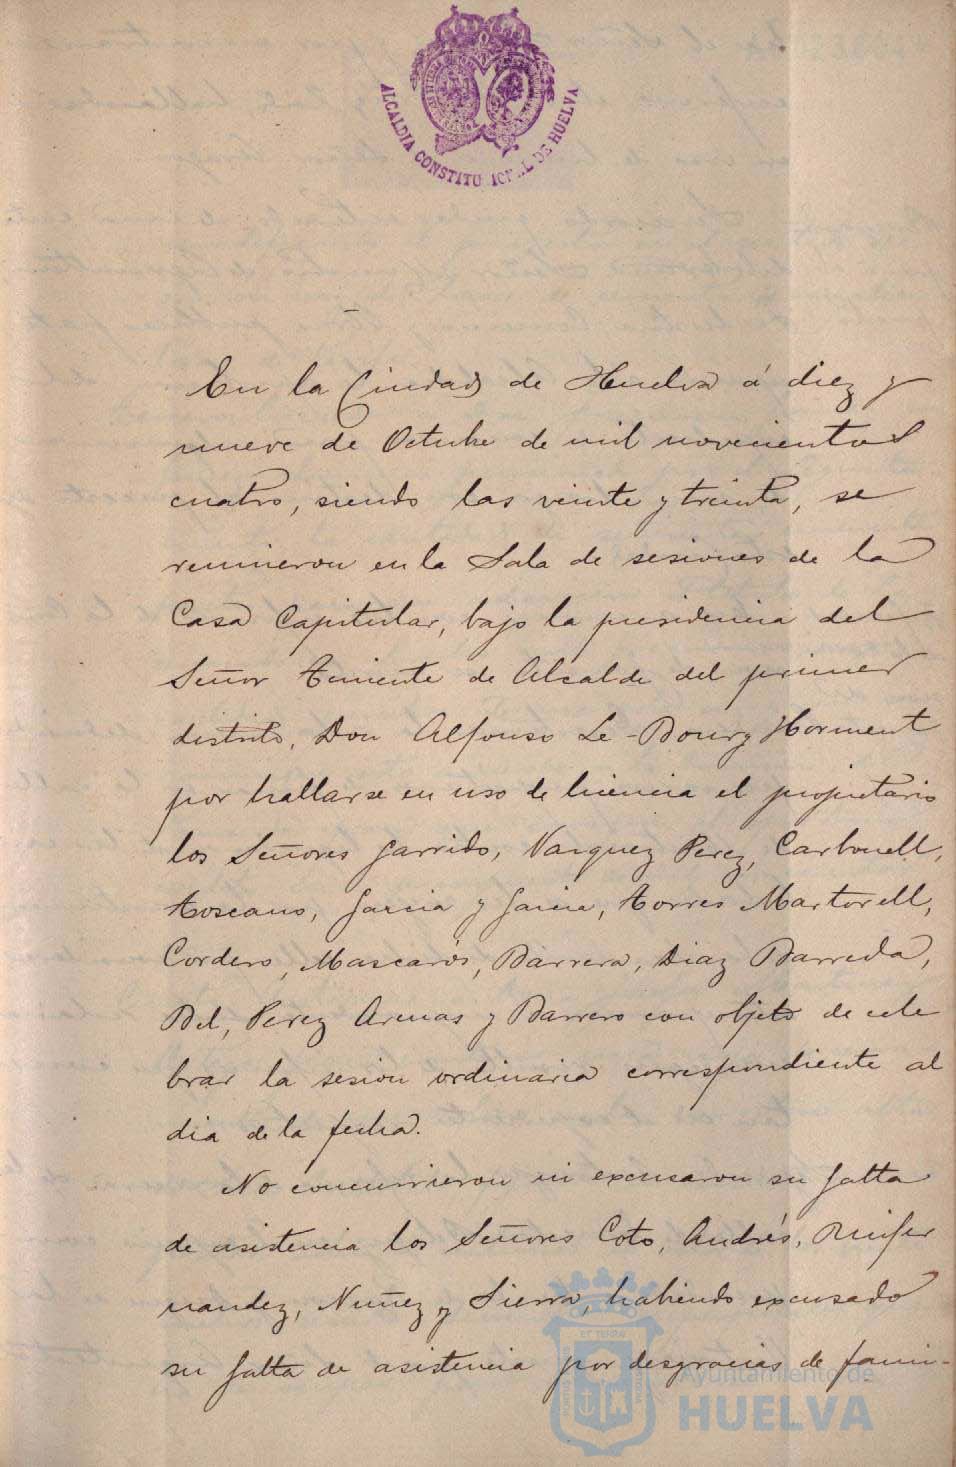 ALCALDIA CONSTITUCIONAL DE HUELVA
En la Ciudad de Huelva á diez y
nueve de Octubre de mil novecientos
cuatro, siendo las veinte y treinta, se
reunieron en la Sala de sesiones de la
Casa Capitular, bajo la presidencia del
Señor Teniente de Alcalde del primer
distrito, Don Alfonso Le-Bourg Horment
por hallarse en uso de licencia el propietario
los Señores Garrido, Vazquez Perez, Carbonell,
Toscano, Garcia y Garcia, Torres Martorell,
Cordero, Mascarós, Barrera, Diaz Barreda,
Bel, Perez Arenas y Barrero con objeto de cele
brar la sesion ordinaria correspondiente al
dia de la fecha.
No concurrieron ni excusaron su falta
de asistencia los Señores Coto, Andrés, Ruifer
nandez, Nuñez y Sierra, habiendo excusado
su falta de asistencia por desgracias de fami-
Ayuntamiento de
HUELVA